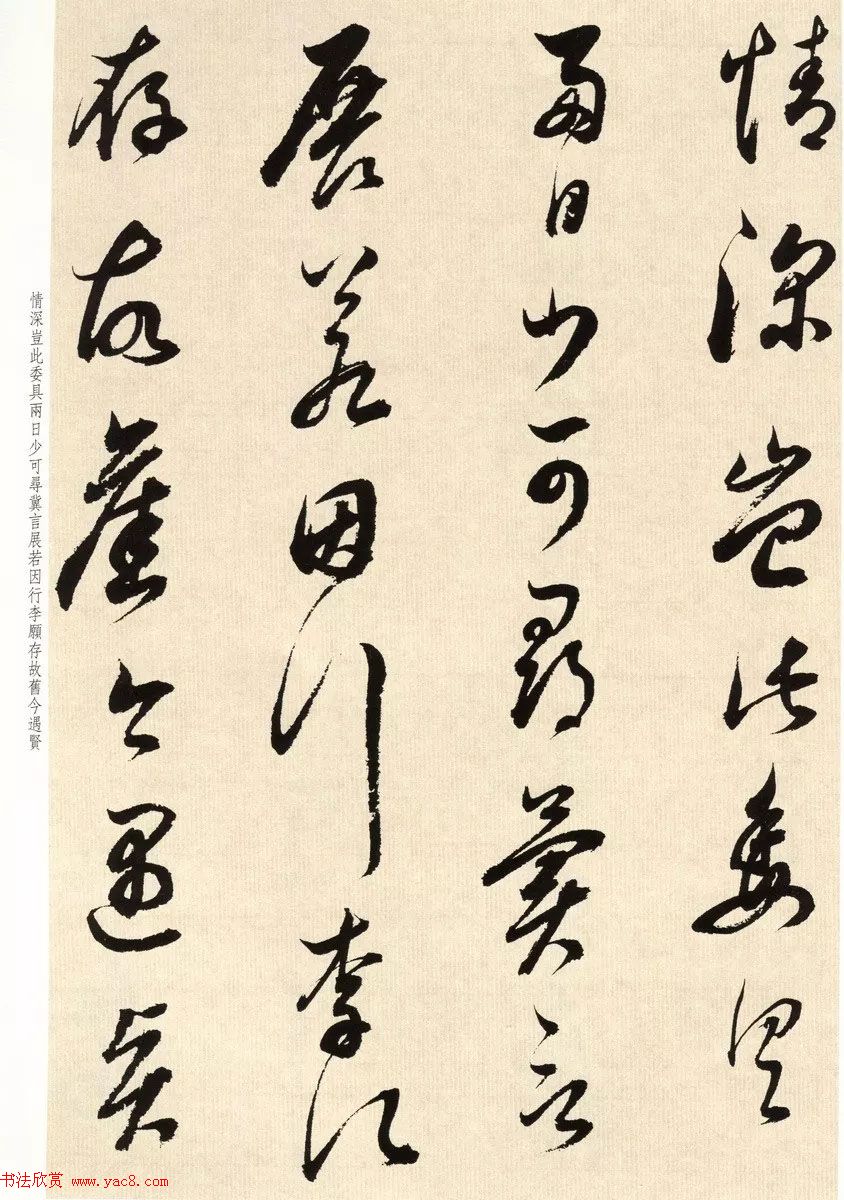 情深豈此委具
兩日少可尋冀言
展若因行李願
存故舊今遇賢
情深豈此委具兩日少可尋冀言展若因行李願存故舊今遇賢
书法欣赏 www.yac8.com